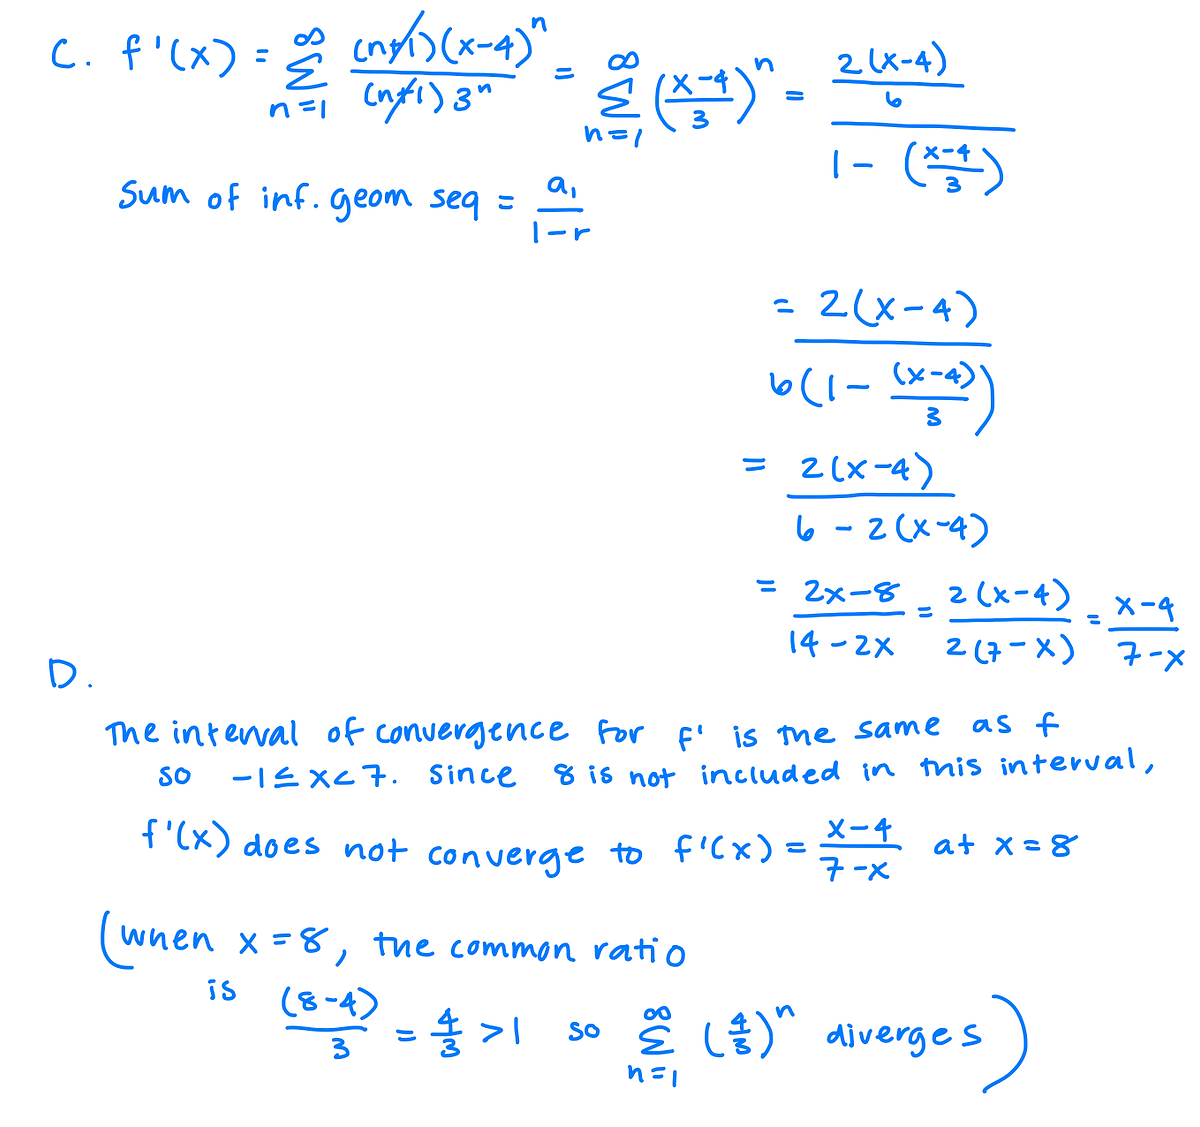 C. f'(x) = ∞∑n=1 (n+1)(x-4)^n / (n+1) 3^n = ∞∑n=1 ((x-4)/3)^n = (2(x-4)/6) / (1 - ((x-4)/3))
Sum of inf. geom seq = a₁/(1-r)
= 2(x-4) / 6(1 - (x-4)/3)
= 2(x-4) / (6 - 2(x-4))
= (2x-8)/(14-2x) = 2(x-4)/2(7-x) = (x-4)/(7-x)
D.
The interval of convergence for f' is the same as f
so -1 ≤ x < 7. Since 8 is not included in this interval,
f'(x) does not converge to f'(x) = (x-4)/(7-x) at x = 8
(when x = 8, the common ratio
is (8-4)/3 = 4/3 > 1 so ∞∑n=1 (4/3)^n diverges)